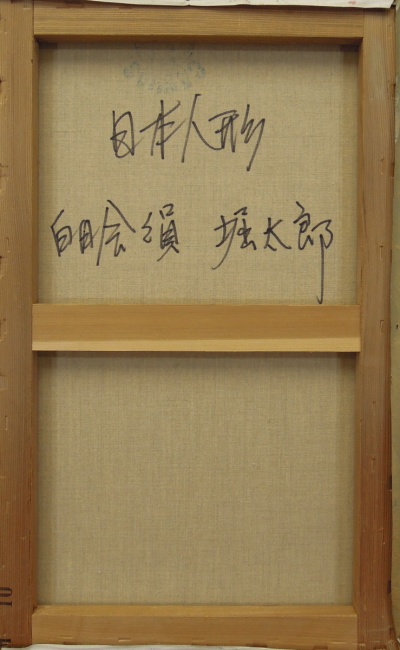 日本人形
白日会員 堀太郎
10